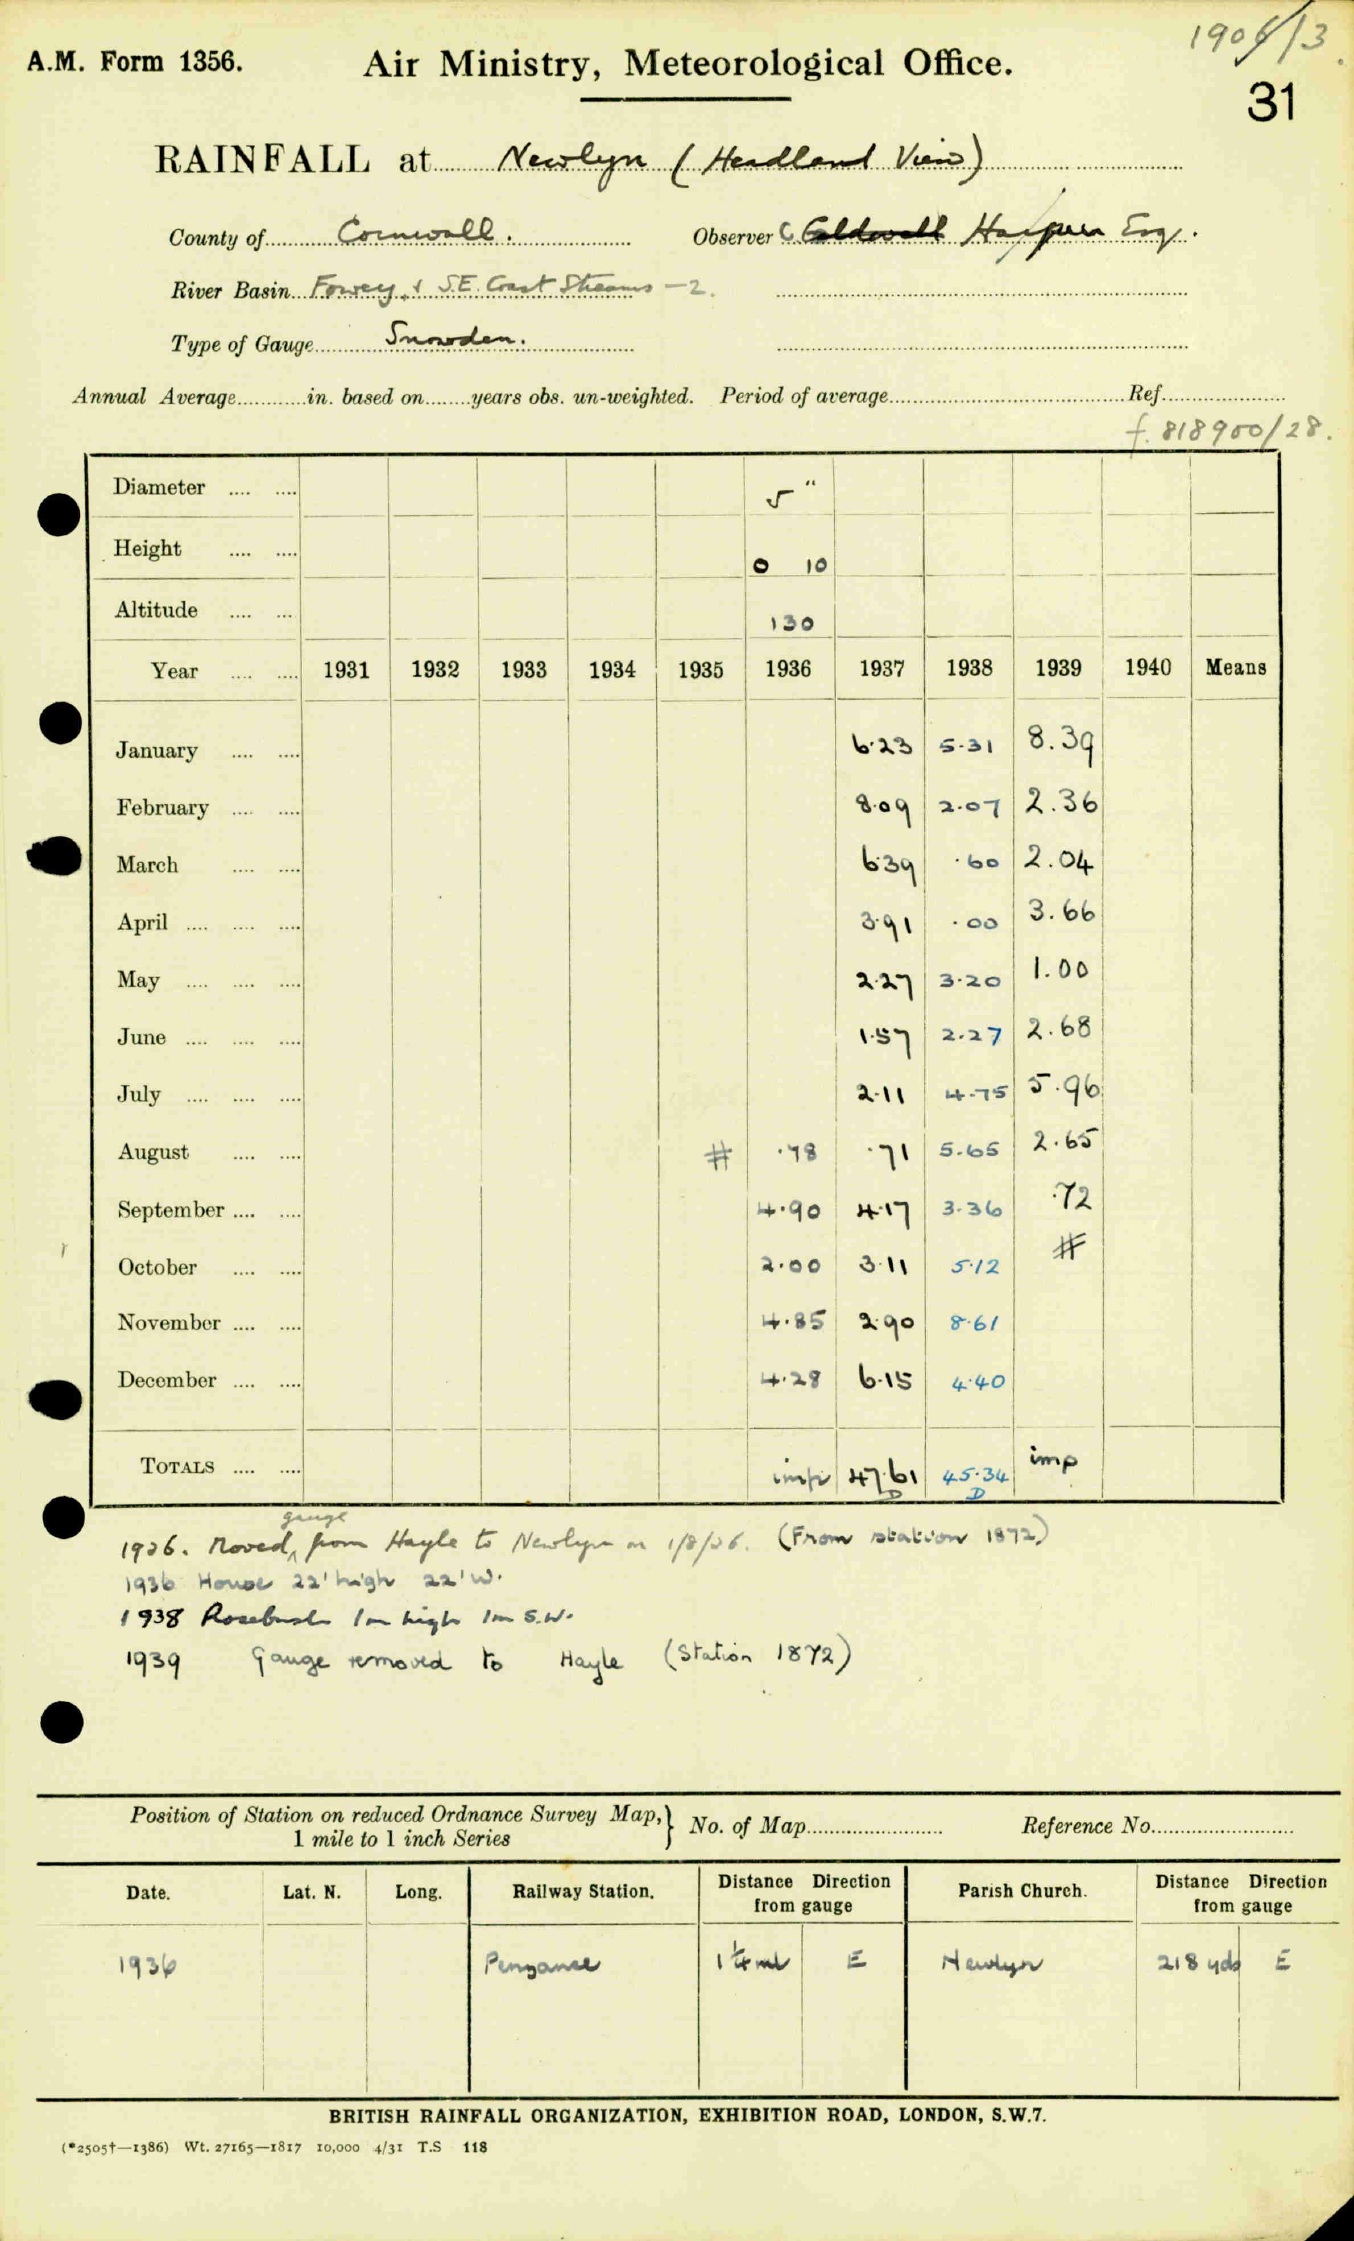 1906/13.
A.M. Form 1356. Air Ministry, Meteorological Office.
31
RAINFALL at Newlyn (Headland View)
County of Cornwall. Observer C Harper Esq.
River Basin Fowey & S.E. Coast Streams - 2.
Type of Gauge Snowden.
Annual Average in. based on years obs. un-weighted. Period of average Ref.
f. 818900/28.
Diameter 5"
Height 0 10
Altitude 130
Year 1931 1932 1933 1934 1935 1936 1937 1938 1939 1940 Means
January 6.23 5.31 8.39
February 8.09 2.07 2.36
March 6.39 .60 2.04
April 3.91 .00 3.66
May 2.27 3.20 1.00
June 1.57 2.27 2.68
July 2.11 4.75 5.96
August # .78 .71 5.65 2.65
September 4.90 4.17 3.36 .72
October 2.00 3.11 5.12 #
November 4.85 2.90 8.61
December 4.28 6.15 4.40
TOTALS imp 47.61 45.34 imp
D D
gauge
1936. Moved ^ from Hayle to Newlyn on 1/8/36. (From station 1872)
1936 House 22' high 22' W.
1938 Rosebush 1m high 1m S.W.
1939 Gauge removed to Hayle (Station 1872)
Position of Station on reduced Ordnance Survey Map, } No. of Map Reference No.
1 mile to 1 inch Series
Date. Lat. N. Long. Railway Station. Distance Direction from gauge Parish Church. Distance Direction from gauge
1936 Penzance 1¼ ml E Newlyn 218 yds E
BRITISH RAINFALL ORGANIZATION, EXHIBITION ROAD, LONDON, S.W.7.
(*2505†—1386) Wt. 27165—1817 10,000 4/31 T.S 118